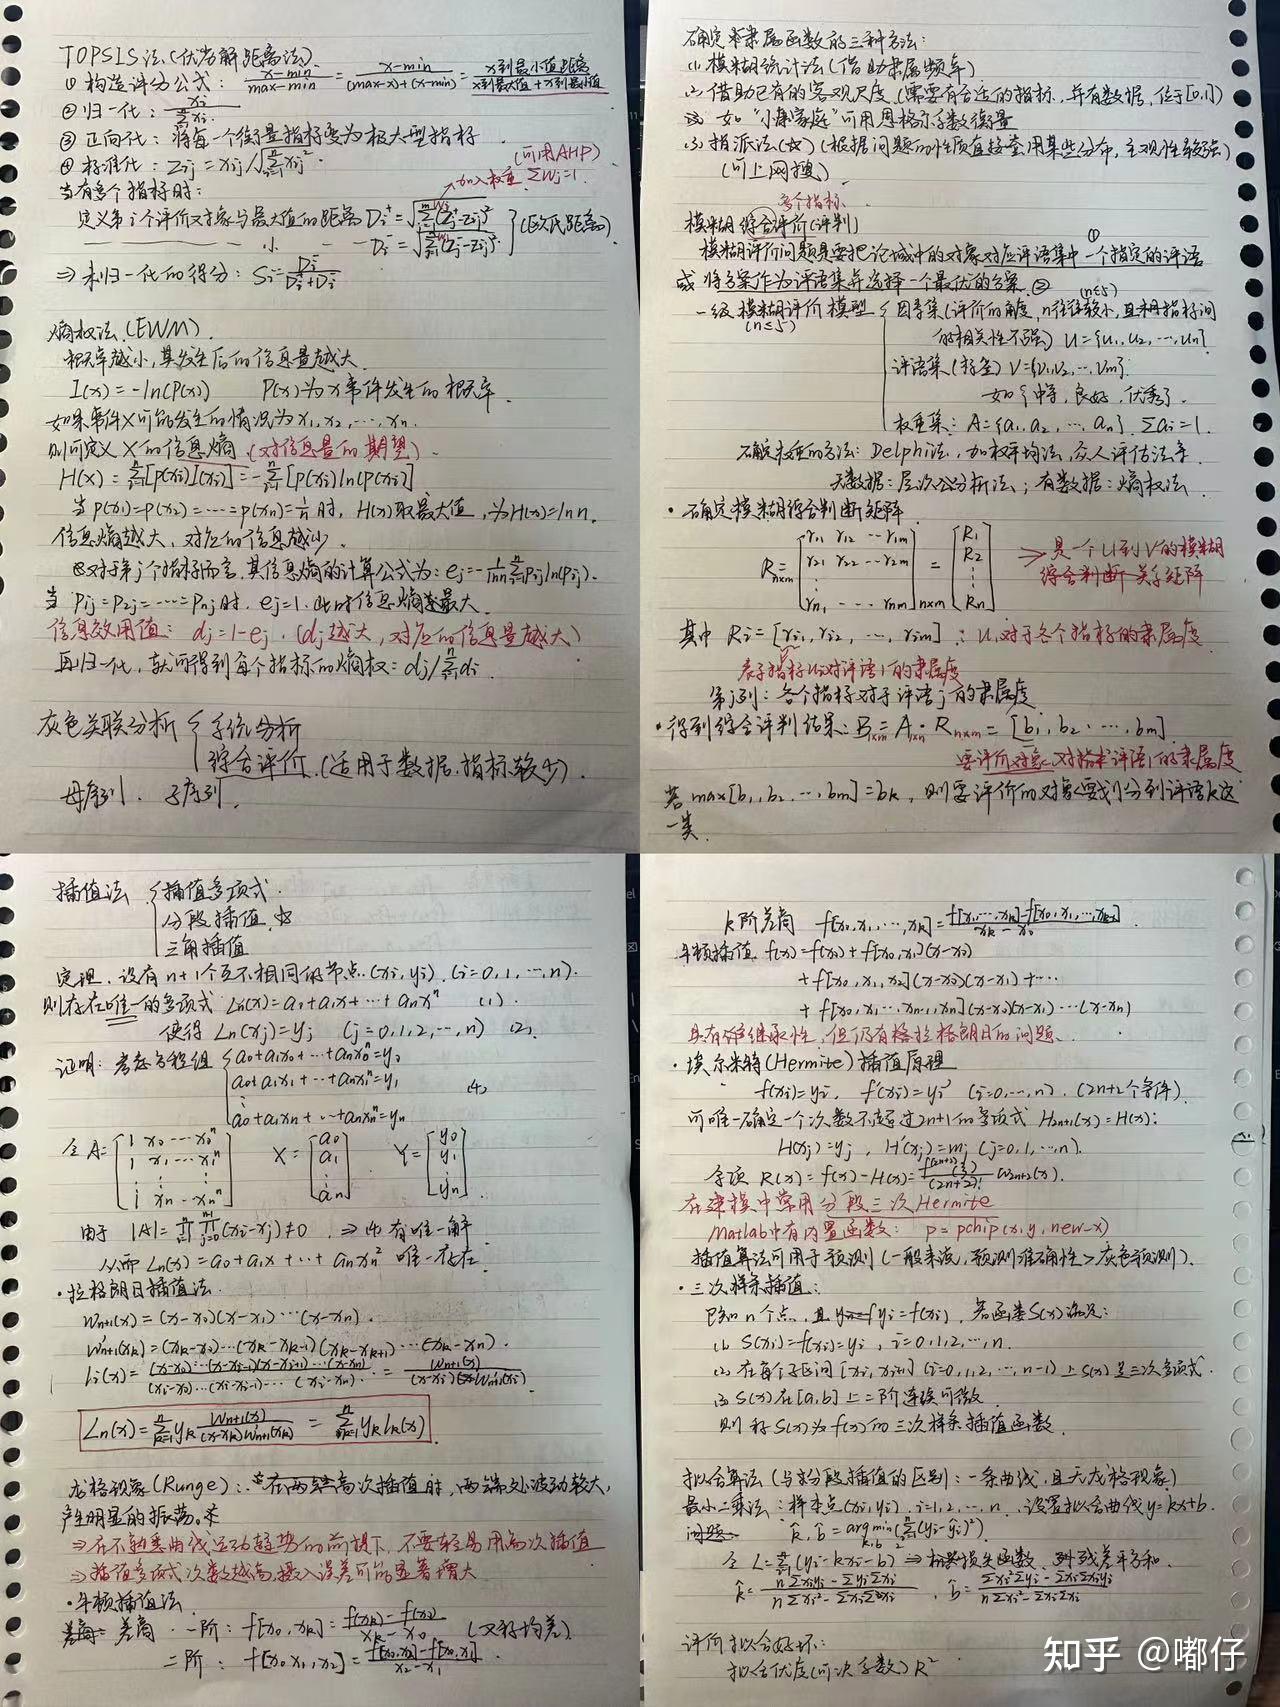 TOPSIS法(优劣解距离法).
① 构造评分公式: \frac{x-min}{max-min} = \frac{x-min}{(max-x)+(x-min)} = \frac{x到最小值距离}{x到最大值+x到最小值}
② 归一化: \frac{x_i}{\sum_{i=1}^{n} x_i}
③ 正向化: 将每一个衡量指标变为极大型指标
④ 标准化: Z_{ij} = x_{ij}/\sqrt{\sum_{i=1}^{n} x_{ij}^2}.
(可用AHP)
当有多个指标时:
加入权重, \sum w_j=1.
定义第i个评价对象与最大值的距离 D_i^+ = \sqrt{\sum_{j=1}^{m} w_j(Z_j^+-Z_{ij})^2} } (欧氏距离).
小 D_i^- = \sqrt{\sum_{j=1}^{m} w_j(Z_j^--Z_{ij})^2}
⇒ 未归一化的得分: S_i = \frac{D_i^-}{D_i^++D_i^-}
熵权法.(EWM).
概率越小,其发生后的信息量越大.
I(x) = -ln(P(x)) P(x)为x事件发生的概率.
如果事件X可能发生的情况为 x_1, x_2, ..., x_n.
则可定义X的信息熵 (对信息量的期望).
H(X) = \sum_{i=1}^{n}[p(x_i)I(x_i)] = -\sum_{i=1}^{n}[p(x_i)ln(p(x_i))]
当 p(x_1)=p(x_2)=......=p(x_n)=\frac{1}{n}时, H(x)取最大值,为H(x)=ln n.
信息熵越大,对应的信息越少.
对第j个指标而言,其信息熵的计算公式为: e_j = -\frac{1}{ln n}\sum_{i=1}^{n} p_{ij}ln(p_{ij}).
当 p_{1j}=p_{2j}=......=p_{nj}时, e_j=1. 此时信息熵最大.
信息效用值: d_j=1-e_j. (d_j越大,对应的信息量越大)
再归一化,就可得到每个指标的熵权: d_j/\sum d_j.
灰色关联分析 { 系统分析
综合评价. (适用于数据,指标较少).
母序列. 子序列.
确定隶属函数的三种方法:
(1) 模糊统计法(借助隶属频率)
(2) 借助已有的客观尺度. (需要有合适的指标,并有数据,位于[0,1])
如"小康家庭"可用恩格尔系数衡量
(3) 指派法(☆) (根据问题的性质直接套用某些分布,主观性较强)
(可上网搜)
多个指标
模糊综合评价(评判)
①
模糊评价问题是要把论域中的对象对应评语集中一个指定的评语
或将方案作为评语集并选择一个最优的方案.②
(n≤5)
一级模糊评价模型 { 因素集(评价的角度,n往往较小,且指标间
(n≤5)
的相关性不强) U={u_1, u_2, ..., u_n}.
评语集(标签) V={v_1, v_2, ..., v_m}.
如{中等, 良好, 优秀}.
权重集: A={a_1, a_2 ..., a_n}. \sum a_i=1.
确定权重的方法: Delphi法, 加权平均法, 众人评估法等.
无数据:层次分析法; 有数据:熵权法
· 确定模糊综合判断矩阵.
R_{n×m} = [r_{11} r_{12} ... r_{1m} = [R_1
r_{21} r_{22} ... r_{2m} R_2 ⇒ 是一个U到V的模糊
⋮ ⋮ 综合判断关系矩阵
r_{n1} ... r_{nm}]_{n×m} R_n]
其中 R_i = [r_{i1}, r_{i2}, ..., r_{im}] : u_i对于各个指标的隶属度
表示指标u_i对评语1的隶属度
第j列: 各个指标对于评语j的隶属度
· 得到综合评判结果: B_{1×m} = A_{1×n} · R_{n×m} = [b_1, b_2 ..., b_m].
要评价对象对评语1的隶属度
若 max[b_1, b_2, ..., b_m]=b_k, 则要评价的对象要划分到评语k这
一类.
插值法 { 插值多项式.
分段插值. ☆
三角插值
定理. 设有n+1个互不相同的节点(x_i, y_i). (i=0,1,...,n).
则存在唯一的多项式 L_n(x)=a_0+a_1x+...+a_nx^n (1).
使得 L_n(x_j)=y_j (j=0,1,2,...,n) (2).
证明: 考虑方程组 { a_0+a_1x_0+...+a_nx_0^n=y_0
a_0+a_1x_1+...+a_nx_1^n=y_1 (4)
⋮
a_0+a_1x_n+...+a_nx_n^n=y_n
令A=[1 x_0 ... x_0^n X=[a_0 Y=[y_0
1 x_1 ... x_1^n a_1 y_1
⋮ ⋮ ⋮
1 x_n ... x_n^n] a_n] y_n].
由于 |A|=\prod_{i=1}^{n}\prod_{j=0}^{i-1}(x_i-x_j)≠0. ⇒(4)有唯一解
从而 L_n(x)=a_0+a_1x+...+a_nx^n 唯一存在.
· 拉格朗日插值法.
w_{n+1}(x)=(x-x_0)(x-x_1)...(x-x_n).
w'_{n+1}(x_k)=(x_k-x_0)...(x_k-x_{k-1})(x_k-x_{k+1})...(x_k-x_n).
l_i(x)=\frac{(x-x_0)...(x-x_{i-1})(x-x_{i+1})...(x-x_n)}{(x_i-x_0)...(x_i-x_{i-1})...(x_i-x_n)} = \frac{w_{n+1}(x)}{(x-x_i)w'_{n+1}(x_i)}
L_n(x)=\sum_{k=1}^{n} y_k \frac{w_{n+1}(x)}{(x-x_k)w'_{n+1}(x_k)} = \sum_{k=1}^{n} y_k l_k(x)
龙格现象(Runge): 在高次插值时,两端处波动较大,
产生明显的振荡.
⇒在不熟悉曲线运动趋势的前提下,不要轻易用高次插值
⇒插值多项式次数越高,摄入误差可能显著增大
· 牛顿插值法
差商. 一阶: f[x_0, x_k]=\frac{f(x_k)-f(x_0)}{x_k-x_0} (又称均差).
二阶: f[x_0, x_1, x_2]=\frac{f[x_0,x_2]-f[x_0,x_1]}{x_2-x_1}.
k阶差商 f[x_0, x_1, ..., x_k]=\frac{f[x_1,...,x_k]-f[x_0,x_1,...,x_{k-1}]}{x_k-x_0}.
牛顿插值. f(x)=f(x_0)+f[x_0,x_1](x-x_0)
+f[x_0,x_1,x_2](x-x_0)(x-x_1)+...
+f[x_0,x_1...,x_{n-1},x_n](x-x_0)(x-x_1)...(x-x_n)
具有继承性,但仍有格拉格朗日的问题.
· 埃尔米特(Hermite)插值原理
f(x_i)=y_i, f'(x_i)=y_i' (i=0,...,n). (2n+2个条件).
可唯一确定一个次数不超过2n+1的多项式 H_{2n+1}(x)=H(x):
H(x_j)=y_j, H'(x_j)=m_j (j=0,1,...,n).
余项 R(x)=f(x)-H(x)=\frac{f^{(2n+2)}(ξ)}{(2n+2)!}w_{2n+2}(x).
在建模中常用分段三次Hermite
Matlab中有内置函数: p=pchip(x,y,new_x)
插值算法可用于预测(一般来说,预测准确性>灰色预测).
· 三次样条插值:
已知n个点,且y_i=f(x_i), 若函数S(x)满足:
(1) S(x_i)=f(x_i)=y_i, i=0,1,2,...,n.
(2) 在每个子区间[x_i, x_{i+1}] (i=0,1,2,...,n-1)上S(x)是三次多项式.
(3) S(x)在[a,b]上二阶连续可微
则称S(x)为f(x)的三次样条插值函数.
拟合算法(与分段插值的区别:一条曲线,且无龙格现象)
最小二乘法: 样本点(x_i,y_i). i=1,2,...,n. 设置拟合曲线y=kx+b.
问题: \hat{k},\hat{b}=arg min_{k,b}(\sum_{i=1}^{n}(y_i-\hat{y}_i)^2).
令L=\sum_{i=1}^{n}(y_i-kx_i-b)^2 ⇒称损失函数,残差平方和.
\hat{k}=\frac{n\sum x_iy_i-\sum y_i\sum x_i}{n\sum x_i^2-\sum x_i\sum x_i}, \hat{b}=\frac{\sum x_i^2\sum y_i-\sum x_i\sum x_iy_i}{n\sum x_i^2-\sum x_i\sum x_i}
评价拟合好坏:
拟合优度(可决系数) R^2
知乎 @嘟仔